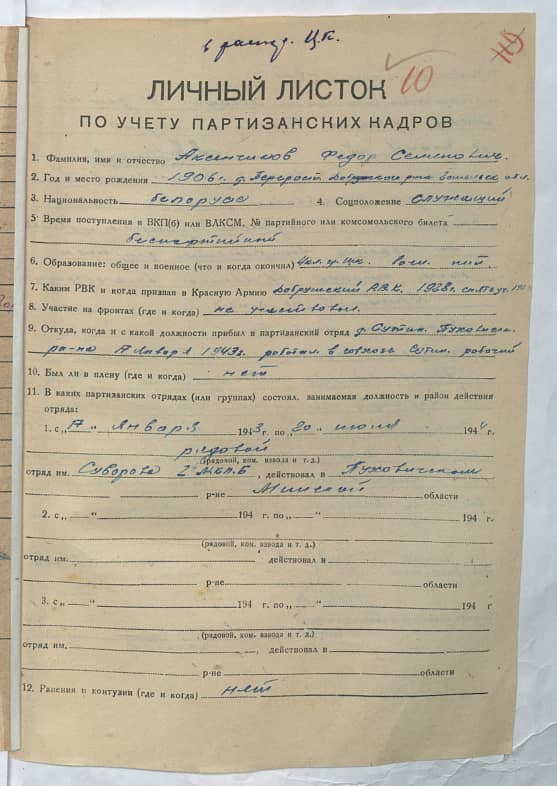 в распор. Ц.К.
10
ЛИЧНЫЙ ЛИСТОК
ПО УЧЕТУ ПАРТИЗАНСКИХ КАДРОВ
1. Фамилия, имя и отчество Аксенчиков Федор Семенович.
2. Год и место рождения 1906 г. д. Перерост Добрушского р-на обл.
3. Национальность белорусс 4. Соцположение служащий
5. Время поступления в ВКП(б) или ВЛКСМ, № партийного или комсомольского билета
беспартийный
6. Образование: общее и военное (что и когда окончил) 4 кл. воен. нит
7. Каким РВК и когда призван в Красную Армию Добрушский РВК. 1928 г.
8. Участие на фронтах (где и когда) не участвовал.
9. Откуда, когда и с какой должности прибыл в партизанский отряд д. Сутин. Пуховичск.
ра-на 7 Января 1943 г. работал в совхозе Сутин. рабочий
10. Был ли в плену (где и когда) нет
11. В каких партизанских отрядах (или группах) состоял, занимаемая должность и район действия
отряда:
1. с „7" Января 1943 г. по „20" июля 1944 г.
рядовой
(рядовой, ком. взвода и т. д.)
отряд им. Суворова 2й МКП.Б, действовал в Пуховичском
р-не Минской области
2. с „ " 194 г. по „ " 194 г.
(рядовой, ком. взвода и т. д.)
отряд им. действовал в
р-не области
3. с „ " 194 г. по „ " 194 г
(рядовой, ком. взвода и т. д.)
отряд им. , действовал в
р-не области
12. Ранения и контузии (где и когда) нет